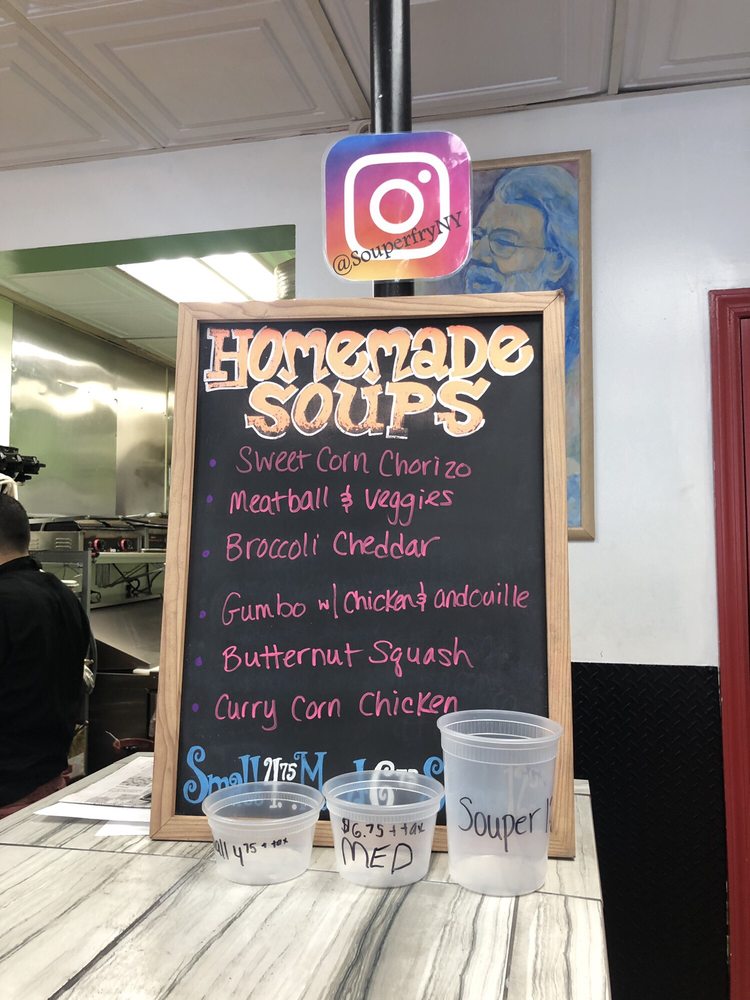 @SouperfryNY
Homemade
Soups
• Sweet Corn Chorizo
• Meatball & Veggies
• Broccoli Cheddar
• Gumbo w/ Chicken & andouille
• Butternut Squash
• Curry Corn Chicken
Small 4.75
4.75 + tax
$6.75 + tax
MED
Souper